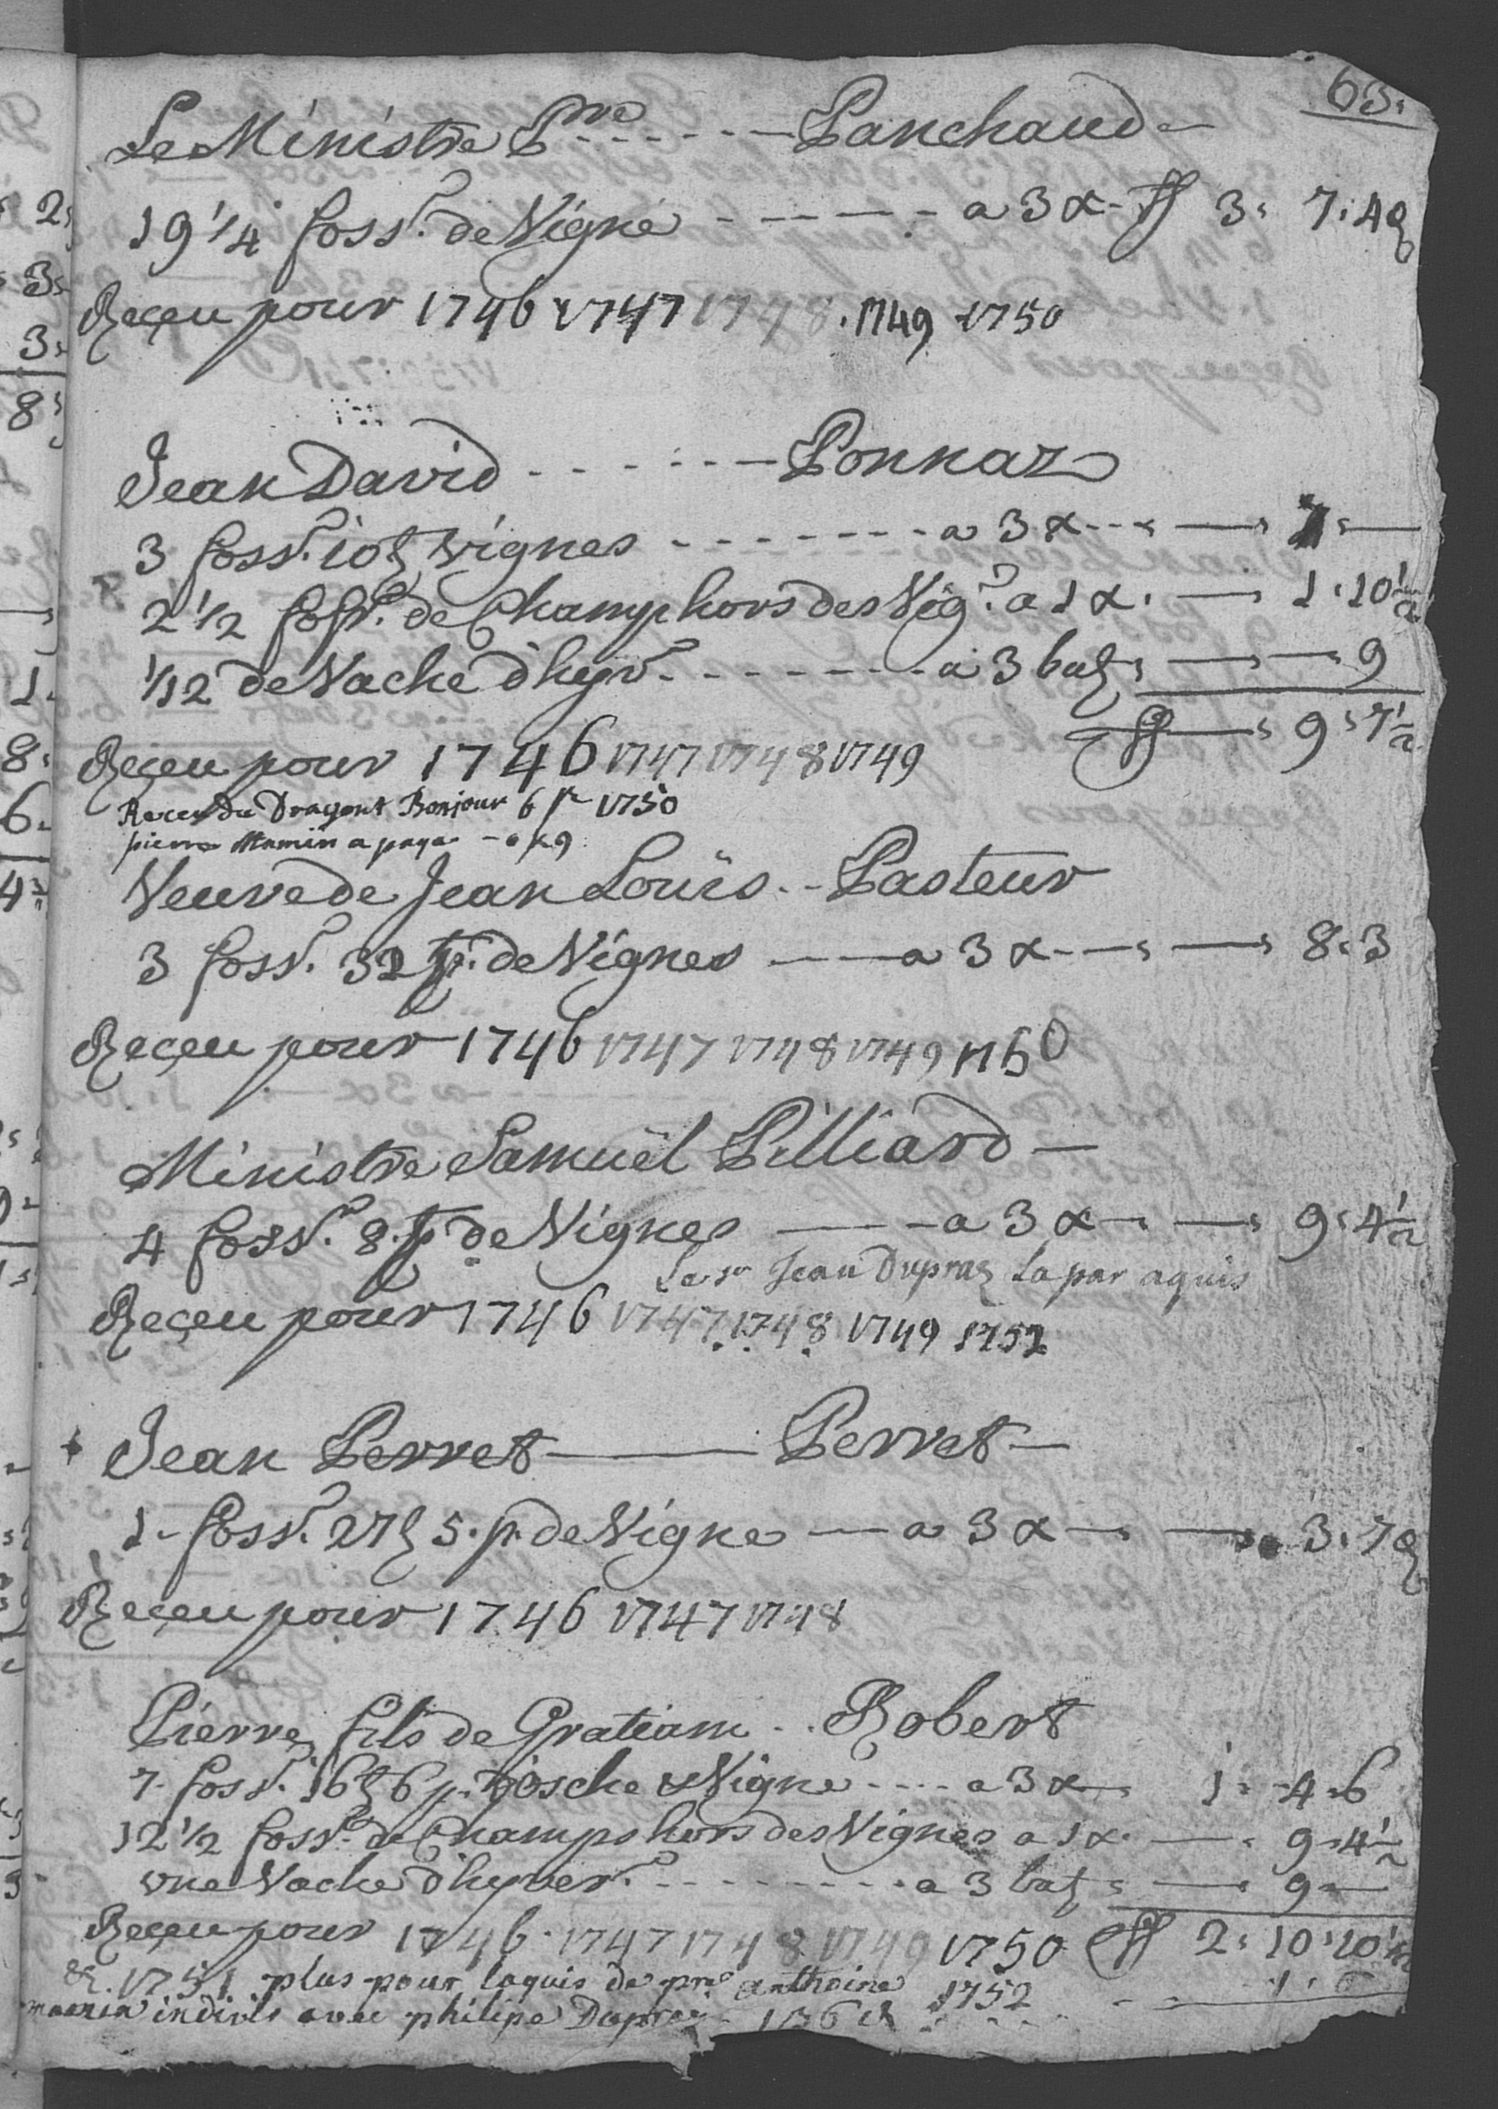 63.
Le Ministre Pre ------ Panchaud
19 1/4 foss.r de Vigne ------ a 3 x - ff 3 : 7 : 4 q
Reçeu pour 1746 1747 1748 . 1749 1750
Jean David ------ Ponnaz
3 foss.r 10 vignes ------ a 3 x --- 7 : —
2 1/2 foss.r de Champ hors des Vig.s a 1 x . — 1 : 10 1/2
1/12 de Vache d'hyv.r ------ a 3 batz — 9
ff — 9 : 7 1/2
Reçeu pour 1746 1747 1748 1749
Receu du Dragont Bonjour 6 1750
pierre Mamin a paye - 9
Veuve de Jean Louïs -- Pasteur
3 foss.r 32 de Vignes — a 3 x — 8 : 3
Reçeu pour 1746 1747 1748 1749 1750
Ministre Samuël Pilliard —
4 foss.r 8 p de Vignes — a 3 x — 9 : 4 1/2
Le sr Jean Dupraz La par aquis
Reçeu pour 1746 1747 1748 1749 1752
Jean Perret — Perret —
1 - foss.r 27 5 . p. de Vigne — a 3 x — 3 : 7 q
Reçeu pour 1746 1747 1748
Pierre fils de Gratiam .. Robert
7 - foss.r 16 6 p. & Vigne ---- a 3 x 1 : 4 : 6
12 1/2 foss.r de Champs hors des Vignes a 1 x . — 9 : 4 1/2
une Vache d'hyver.r ------ a 3 batz — 9 —
Reçeu pour 1746 . 1747 1748 1749 1750 ff 2 : 10 : 10 1/2
& . 1751 plus pour laquis de pre anthoine 1752
mamin indivis avec philipe Duprez